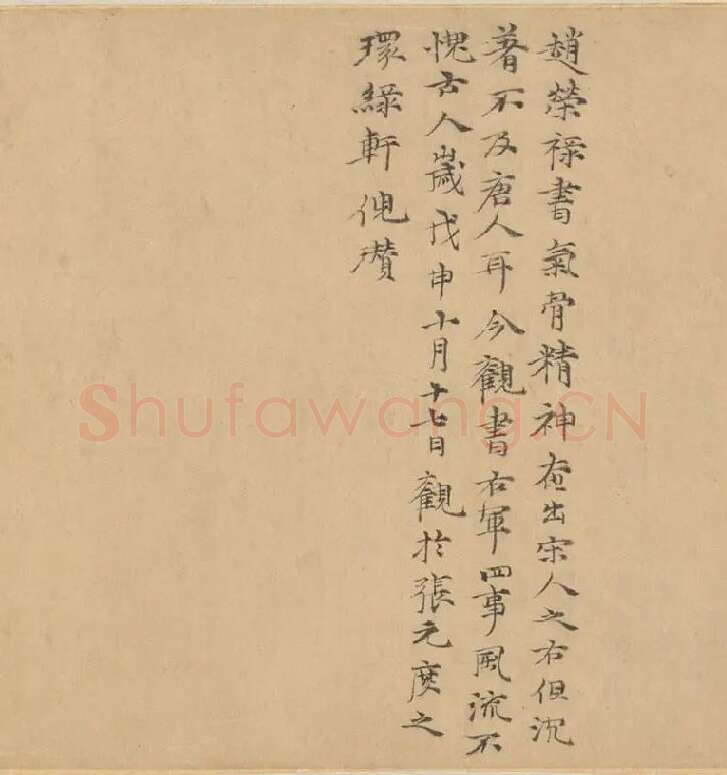 趙榮祿書氣骨精神在出宋人之右但沉
著不及唐人耳今觀書右軍四事風流不
愧古人歲戊申十月十七日觀於張元度之
環綠軒倪瓚
Shufawang.CN